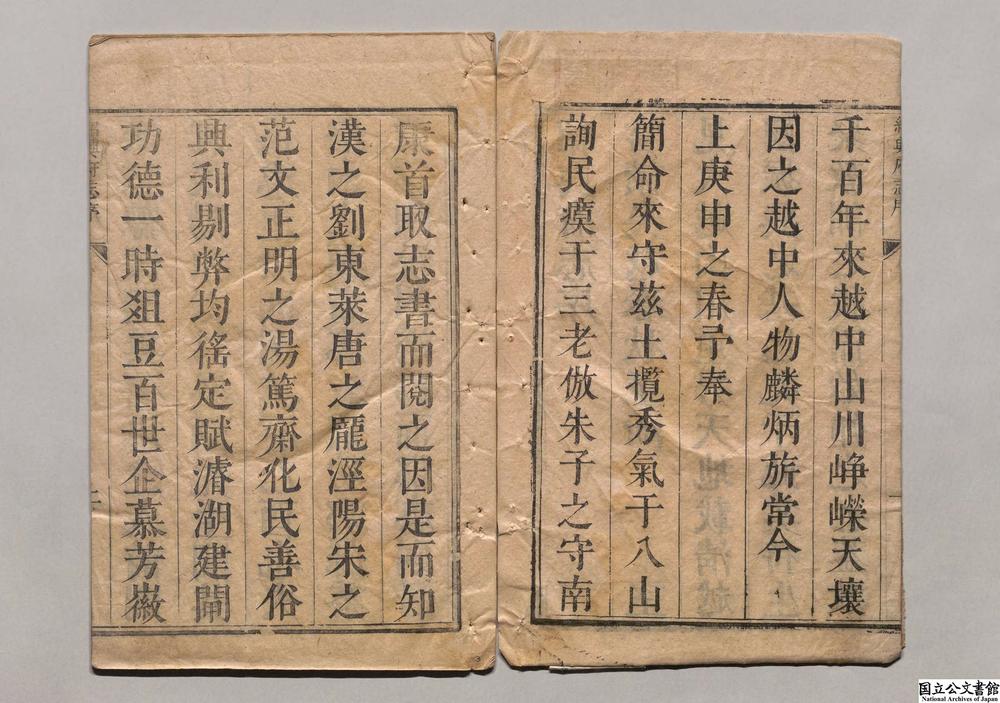 千百年來越中山川崢嶸天壤
因之越中人物麟炳旂常今
上庚申之春予奉
簡命來守茲土攬秀氣于八山
詢民瘼于三老倣朱子之守南
康首取志書而閱之因是而知
漢之劉東萊唐之龎涇陽宋之
范文正明之湯篤齋化民善俗
興利剔弊均徭定賦濬湖建閘
功德一時爼豆百世企慕芳徽
二
国立公文書館
National Archives of Japan